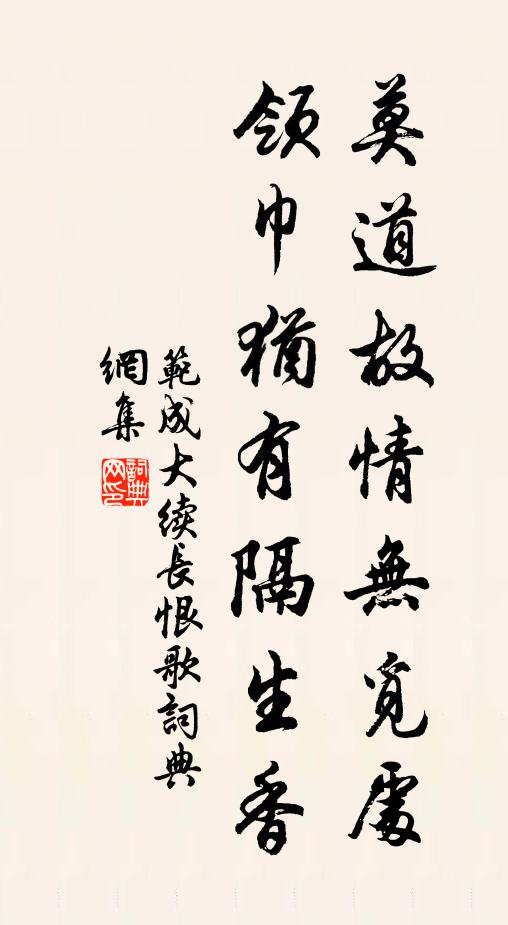 莫道故情無覓處
領巾猶有隔生香
範成大续長恨歌詞典
網集
詞典
网印